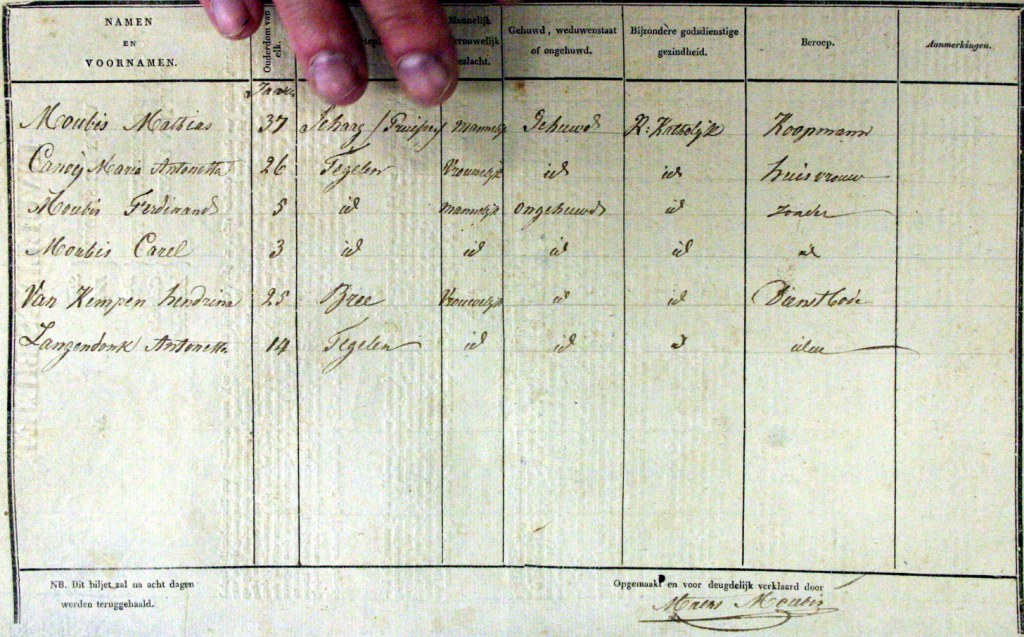 NAMEN EN VOORNAMEN. Ouderdom van elk. Mannelijk vrouwelijk geslacht. Gehuwd, weduwenstaat of ongehuwd. Bijzondere godsdienstige gezindheid. Beroep. Aanmerkingen.
Jaren
Moubis Mathias 37 Schaag / Pruissen / Mannelijk Gehuwd R: Katholijk Koopmann
Canoij Maria Antonetta 26 Tegelen Vrouwelijk id id huisvrouw
Moubis Ferdinand 5 id Mannelijk ongehuwd id zonder
Moubis Carel 3 id id id id id
Van Kempen hendrina 25 Bree Vrouwelijk id id Dienstbode
Langendonk Antonetta 14 Tegelen id id id
NB. Dit biljet zal na acht dagen
worden teruggehaald.
Opgemaakt en voor deugdelijk verklaard door
Moubis